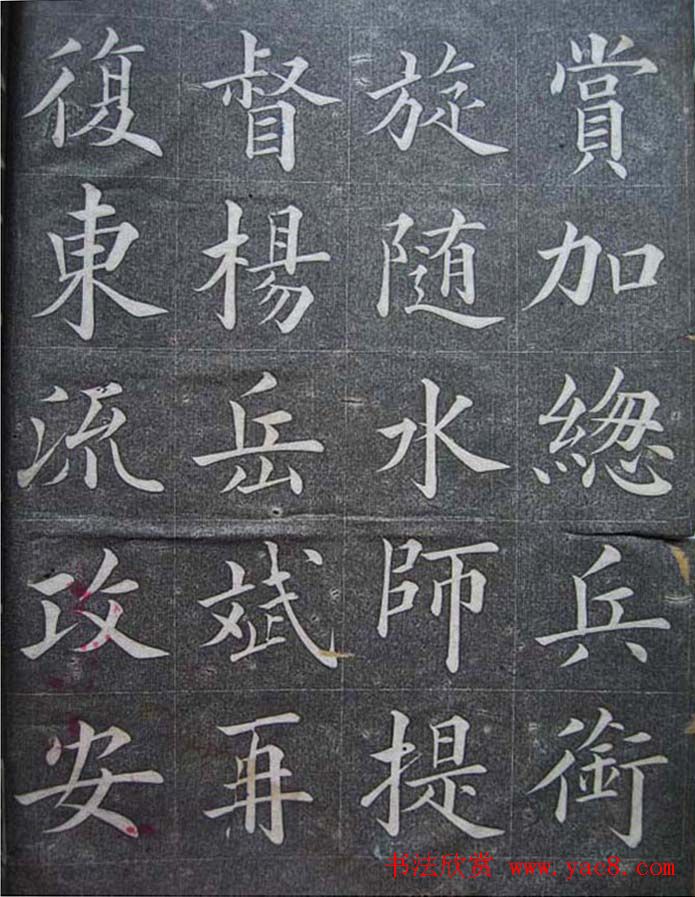 賞加緫兵銜
旋隨水師提
督楊岳斌再
復東流攻安
书法欣赏 www.yac8.com